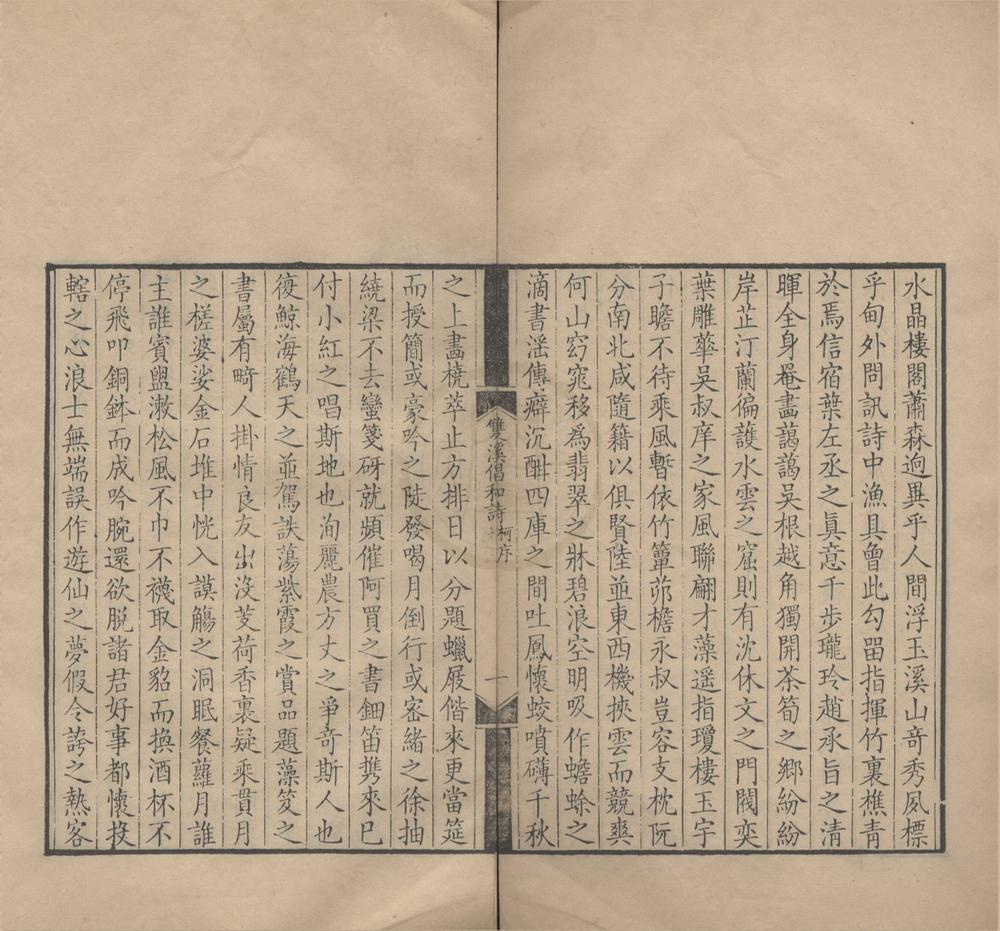 水晶樓閣蕭森逈異乎人間浮玉溪山奇秀夙標
乎甸外問訊詩中漁具曾此勾畱指揮竹裏樵青
於焉信宿葉左丞之眞意千步瓏玲趙承旨之清
暉全身罨畵藹藹吳根越角獨開茶筍之鄉紛紛
岸芷汀蘭徧護水雲之窟則有沈休文之門閥奕
葉雕華吳叔庠之家風聯翩才藻遥指瓊樓玉宇
子瞻不待乘風暫依竹簟茆檐永叔豈容支枕阮
分南北咸隨籍以俱賢陸並東西機挾雲而競爽
何山窈窕移爲翡翠之牀碧浪空明吸作蟾蜍之
滴書滛傳癖沉酣四庫之間吐鳳懷蛟噴礴千秋
雙溪倡和詩 柯序 一
之上畵橈萃止方排日以分題蠟屐偕來更當筵
而授簡或豪吟之陡發喝月倒行或密緒之徐抽
繞梁不去蠻箋砑就頻催阿買之書鈿笛携來已
付小紅之唱斯地也洵麗農方丈之爭奇斯人也
復鯨海鶴天之並駕詄蕩紫霞之賞品題藻笅之
書屬有畸人掛情良友出沒芰荷香裏疑乘貫月
之槎婆娑金石堆中恍入謨觴之洞眠餐蘿月誰
主誰賓盥漱松風不巾不襪取金貂而換酒杯不
停飛叩銅鉢而成吟腕還欲脫諸君好事都懷投
轄之心浪士無端誤作遊仙之夢假令誇之熱客